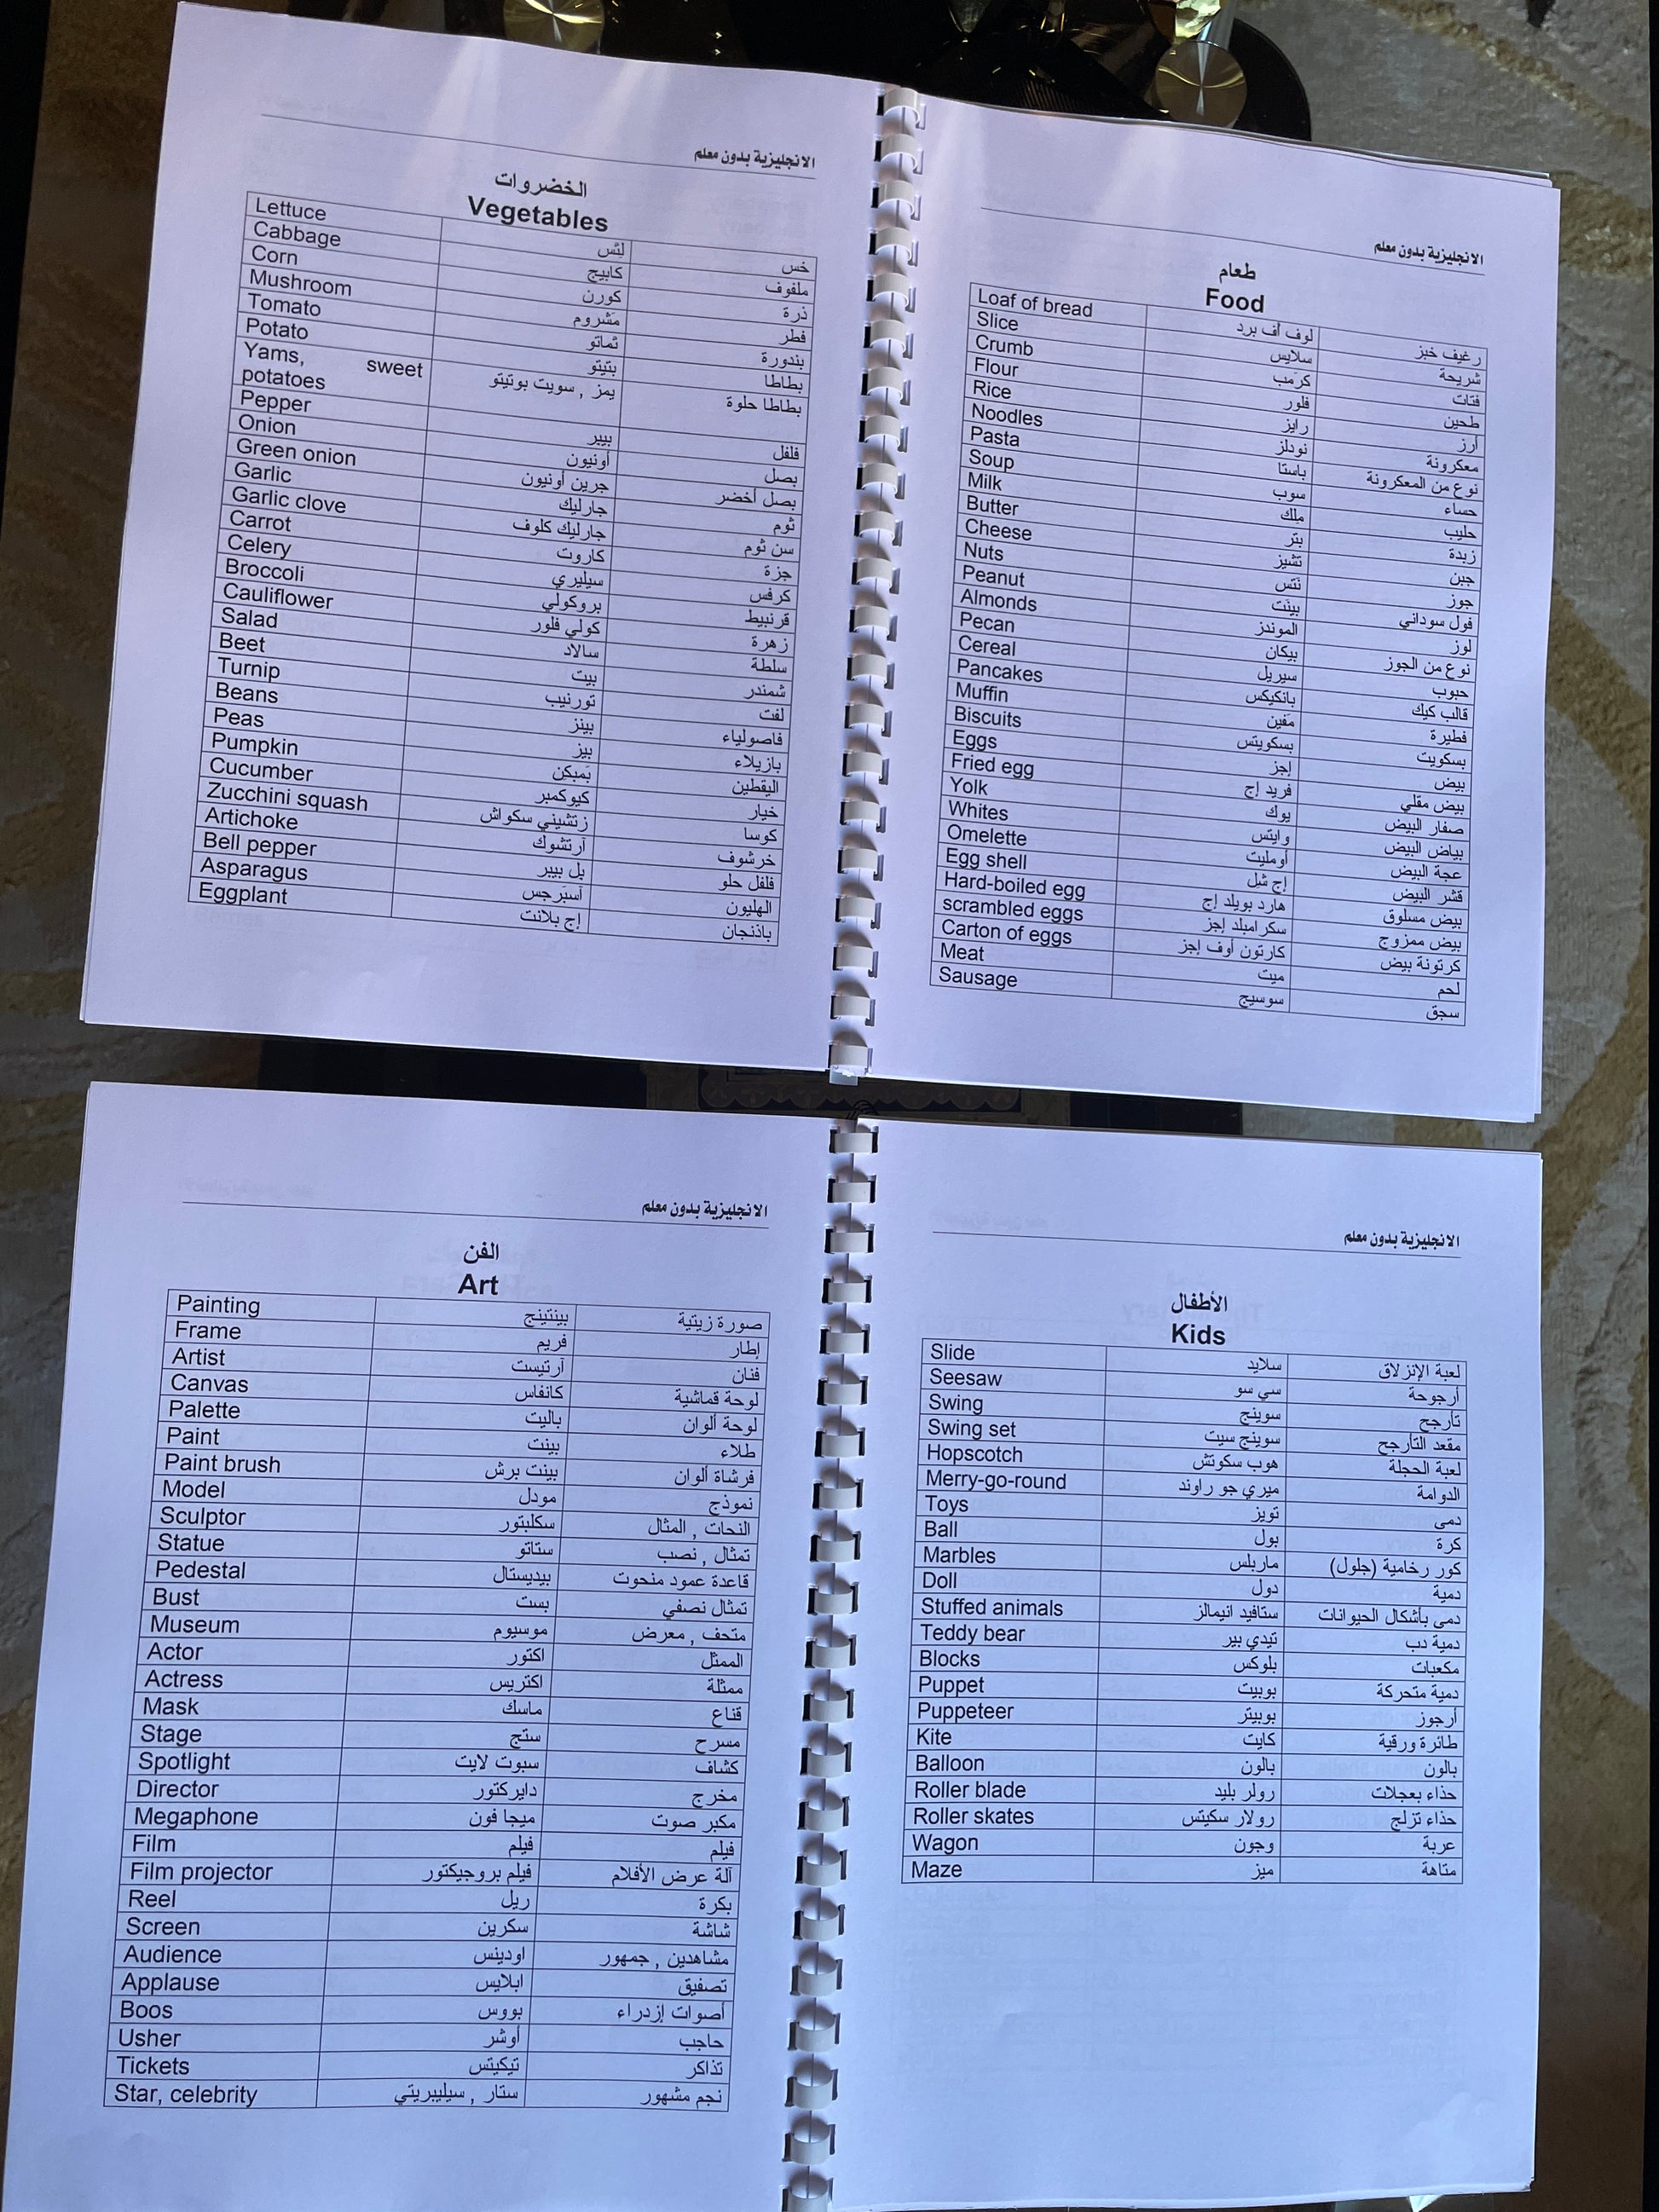 الانجليزية بدون معلم
الخضروات
Vegetables
Lettuce لِتَس خس
Cabbage كابيج ملفوف
Corn كورن ذرة
Mushroom مَشروم فطر
Tomato ثماتو بندورة
Potato بتيتو بطاطا
Yams, sweet potatoes يمز , سويت بوتيتو بطاطا حلوة
Pepper بيبر فلفل
Onion أونيون بصل
Green onion جرين أونيون بصل أخضر
Garlic جارليك ثوم
Garlic clove جارليك كلوف سن ثوم
Carrot كاروت جزة
Celery سيليري كرفس
Broccoli بروكولي قرنبيط
Cauliflower كولي فلور زهرة
Salad سالاد سلطة
Beet بيت شمندر
Turnip تورنيب لفت
Beans بينز فاصولياء
Peas بيز بازيلاء
Pumpkin بَمبكِن اليقطين
Cucumber كيوكمبر خيار
Zucchini squash زتشيني سكواش كوسا
Artichoke آرتشوك خرشوف
Bell pepper بل بيبر فلفل حلو
Asparagus آسبَرجس الهليون
Eggplant إج بلانت باذنجان
الانجليزية بدون معلم
طعام
Food
Loaf of bread لوف أف برد رغيف خبز
Slice سلايس شريحة
Crumb كرَمب فتات
Flour فلور طحين
Rice رايز أرز
Noodles نودلز معكرونة
Pasta باستا نوع من المعكرونة
Soup سوب حساء
Milk ملك حليب
Butter بتر زبدة
Cheese تشيز جبن
Nuts نَتس جوز
Peanut بينَت فول سوداني
Almonds الموندز لوز
Pecan بيكان نوع من الجوز
Cereal سيريل حبوب
Pancakes بانكيكس قالب كيك
Muffin مَفين فطيرة
Biscuits بسكويتس بسكويت
Eggs إجز بيض
Fried egg فريد إج بيض مقلي
Yolk يوك صفار البيض
Whites وايتس بياض البيض
Omelette أومليت عجة البيض
Egg shell إج شل قشر البيض
Hard-boiled egg هارد بويلد إج بيض مسلوق
scrambled eggs سكرامبلد إجز بيض ممزوج
Carton of eggs كارتون أوف إجز كرتونة بيض
Meat ميت لحم
Sausage سوسيج سجق
الانجليزية بدون معلم
الفن
Art
Painting بينتينج صورة زيتية
Frame فريم إطار
Artist آرتيست فنان
Canvas كانفاس لوحة قماشية
Palette باليت لوحة ألوان
Paint بينت طلاء
Paint brush بينت برش فرشاة ألوان
Model مودل نموذج
Sculptor سكلبتور النحات , المثال
Statue ستاتو تمثال , نصب
Pedestal بيديستال قاعدة عمود منحوت
Bust بست تمثال نصفي
Museum موسيوم متحف , معرض
Actor اكتور الممثل
Actress اكتريس ممثلة
Mask ماسك قناع
Stage ستج مسرح
Spotlight سبوت لايت كشاف
Director دايركتور مخرج
Megaphone ميجا فون مكبر صوت
Film فيلم فيلم
Film projector فيلم بروجيكتور آلة عرض الأفلام
Reel ريل بكرة
Screen سكرين شاشة
Audience اودينس مشاهدين , جمهور
Applause ابلايس تصفيق
Boos بووس أصوات إزدراء
Usher أوشر حاجب
Tickets تيكيتس تذاكر
Star, celebrity ستار , سيليبريتي نجم مشهور
الانجليزية بدون معلم
الأطفال
Kids
Slide سلايد لعبة الإنزلاق
Seesaw سي سو أرجوحة
Swing سوينج تأرجح
Swing set سوينج سيت مقعد التأرجح
Hopscotch هوب سكوتش لعبة الحجلة
Merry-go-round ميري جو راوند الدوامة
Toys تويز دمى
Ball بول كرة
Marbles ماربلس كور رخامية (جلول)
Doll دول دمية
Stuffed animals ستافيد انيمالز دمى بأشكال الحيوانات
Teddy bear تيدي بير دمية دب
Blocks بلوكس مكعبات
Puppet بوبيت دمية متحركة
Puppeteer بوبيتر أرجوز
Kite كايت طائرة ورقية
Balloon بالون بالون
Roller blade رولر بليد حذاء بعجلات
Roller skates رولار سكيتس حذاء تزلج
Wagon وجون عربة
Maze ميز متاهة